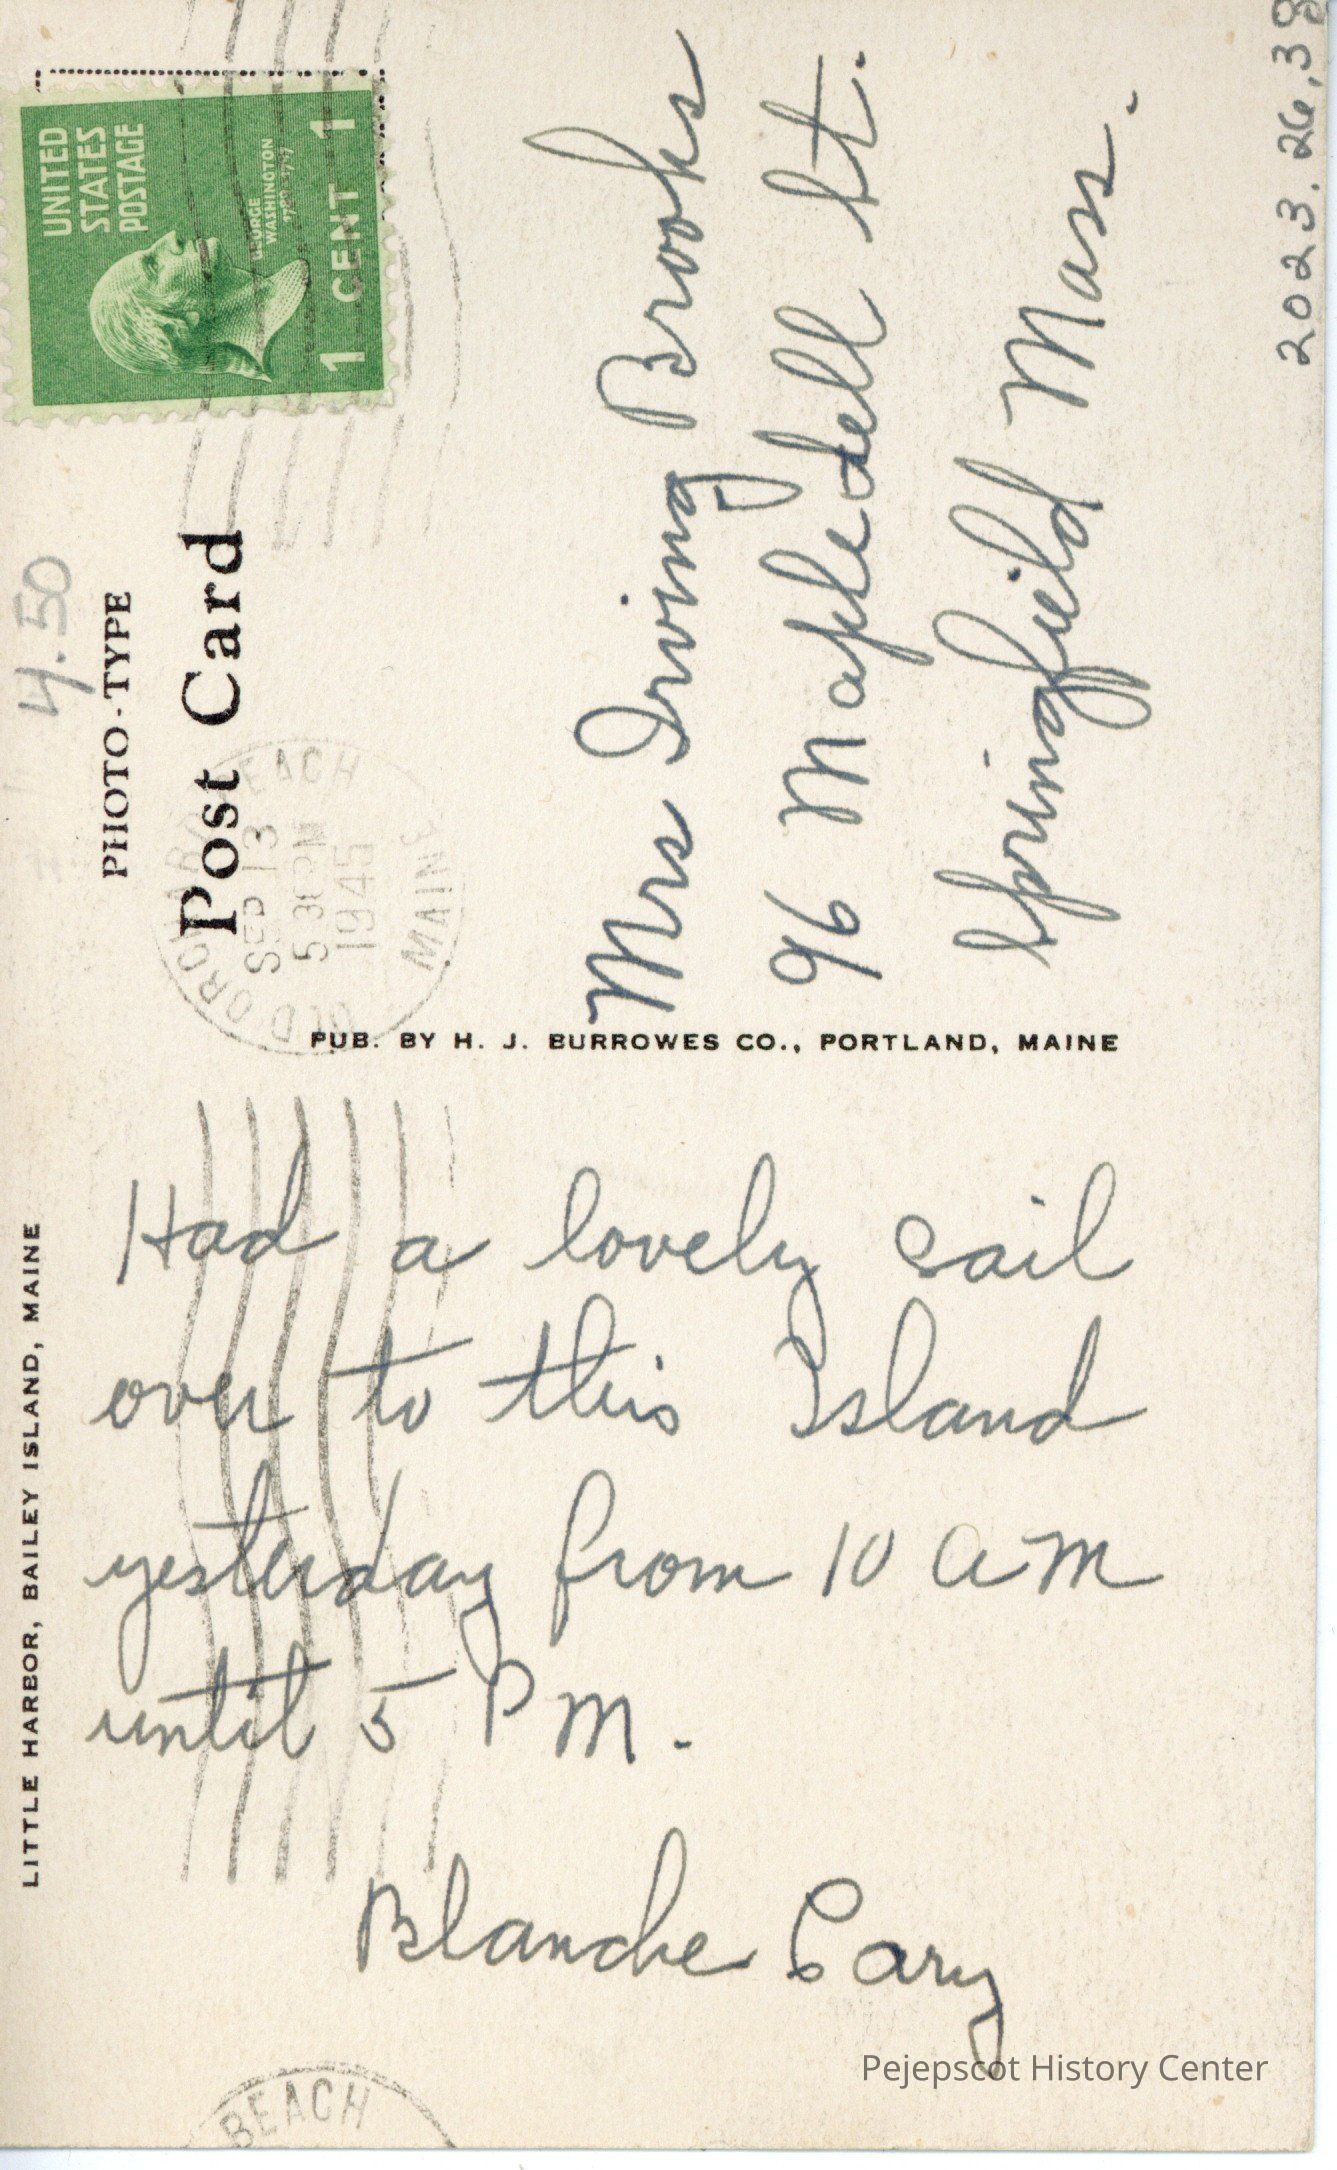 LITTLE HARBOR, BAILEY ISLAND, MAINE
Had a lovely sail
over to this Island
yesterday from 10 A M
until 5 P M.
Blanche Cary
PUB. BY H. J. BURROWES CO., PORTLAND, MAINE
4.50
PHOTO-TYPE
Post Card
OLD ORCHARD BEACH
SEP 13
5 30 PM
1945
MAINE
UNITED
STATES
POSTAGE
GEORGE
WASHINGTON
1789-1797
1 CENT 1
Mrs Irving Brooks
96 Mapledell St.
Springfield Mass.
2023.26.38
BEACH
Pejepscot History Center